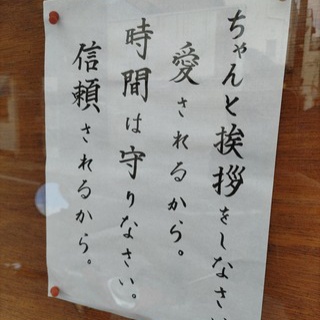 ちゃんと挨拶をしなさい
愛されるから。
時間は守りなさい。
信頼されるから。